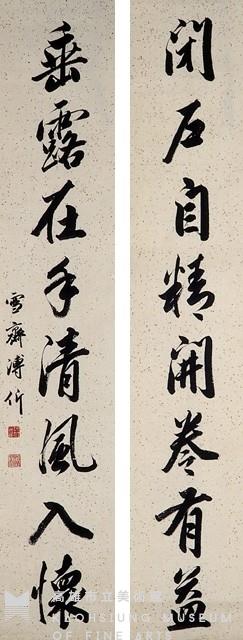 閉戶自精開卷有益
垂露在手清風入懷
雪齋溥伒
高雄市立美術館
KAOHSIUNG MUSEUM
OF FINE ARTS